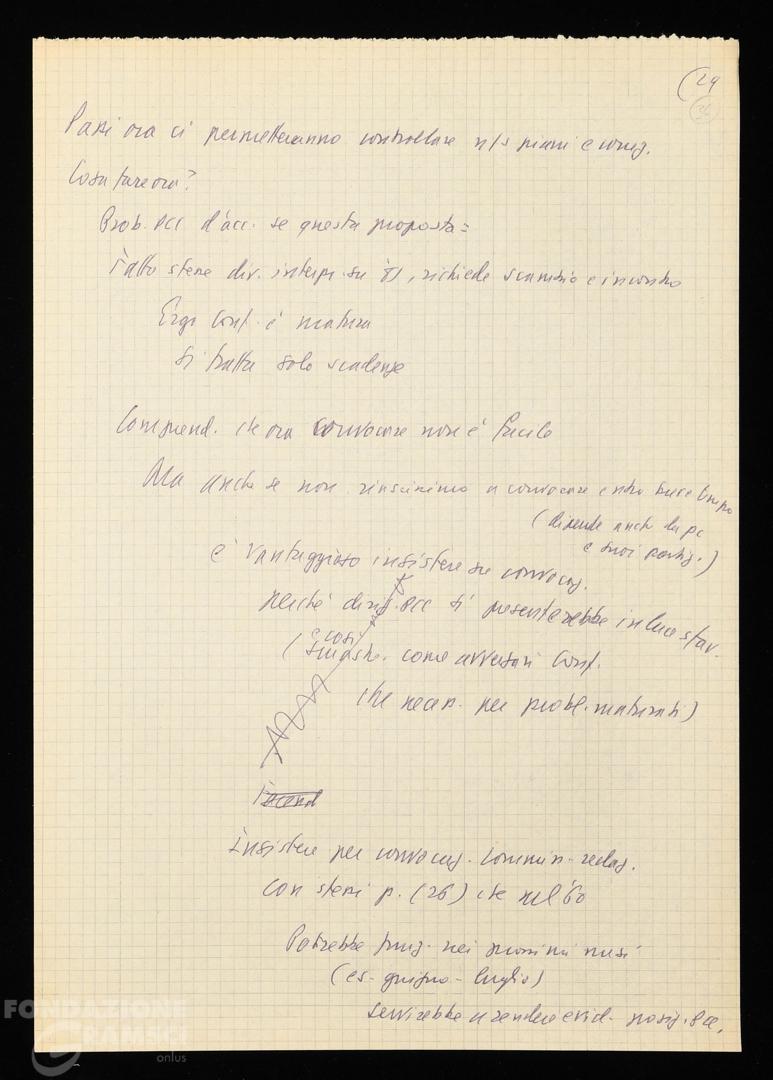 (29
Passi ora ci permetteranno controllare n/s piani e cong.
Cosa fare ora?
Prob. PCC d'acc. se questa proposta =
Fatto stesse div. interpr. su , richiede scambio e incontro
Ergo Conf. è matura
Si tratta solo scadenze
Comprend. che ora convocare non è facile
Ma anche se non riuscissimo a convocare entro breve tempo
(dipende anch da pc
e suoi partig.)
è vantaggioso insistere su convocaz.
perché dirig. PCC si presenterebbe in luce sfav.
e così
(smasche. come avversari Conf.
che necess. per probl. maturati)
Insistere per convocaz. commiss. redaz.
con stessi p. (26) che nel '60
Potrebbe funz. nei prossimi mesi
(es. giugno - luglio)
servirebbe a rendere evid. posiz. PCC.
FONDAZIONE
GRAMSCI
onlus